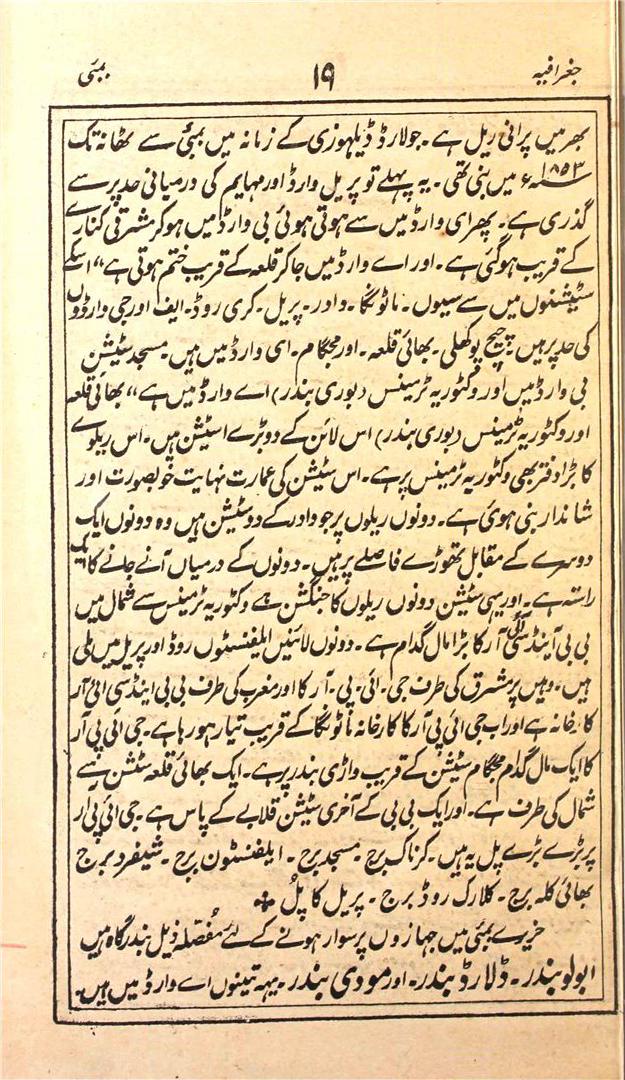 جغرافیہ ۱۹ بمبئی
بھر میں پرانی ریل ہے۔ جو لارڈ ڈیلہوزی کے زمانہ میں بمبئی سے ٹھانہ تک
سنہ ۱۸۵۳ء میں بنی تھی۔ یہ پہلے تو پریل وارڈ اور مہایم کی درمیانی حد پر سے
گذری ہے۔ پھر ای وارڈ میں سے ہوتی ہوئی بی وارڈ میں ہو کر مشرقی کنارے
کے قریب ہو گئی ہے۔ اور اے وارڈ میں جا کر قلعہ کے قریب ختم ہوتی ہے ‘‘ اسکے
سٹیشنوں میں سے سیوں۔ ماٹونگا۔ دادر۔ پریل۔ کری روڈ۔ ایف اور جی وارڈوں
کی حد پر ہیں۔ چیچ پوکھلی۔ بھائی قلعہ۔ اور مجگام۔ ای وارڈ میں ہیں۔ مسجد سٹیشن
بی وارڈ میں اور وکٹوریہ ٹرمینس (بوری بندر) اے وارڈ میں ہے ‘‘ بھائی قلعہ
اور وکٹوریہ ٹرمینس (بوری بندر) اس لائن کے دو بڑے اسٹیشن ہیں۔ اس ریلوے
کا بڑا دفتر بھی وکٹوریہ ٹرمینس پر ہے۔ اس سٹیشن کی عمارت نہایت خوبصورت اور
شاندار بنی ہوئی ہے۔ دونوں ریلوں پر جو دادر کے دو سٹیشن ہیں وہ دونوں ایک
دوسرے کے مقابل تھوڑے فاصلے پر ہیں۔ دونوں کے درمیاں آنے جانے کا ایک
راستہ ہے۔ اور یہی سٹیشن دونوں ریلوں کا جنکشن ہے وکٹوریہ ٹرمینس سے شمال میں
بی بی اینڈ سی آئی آر کا بڑا مال گدام ہے۔ دونوں لائنیں ایلفنسٹوں روڈ اور پریل میں ملی
ہیں۔ وہیں پر مشرق کی طرف جی۔ ائی۔ پی۔ آر کا اور مغرب کی طرف بی بی اینڈ سی ائی آر
کا کارخانہ ہے اور اب جی ائی پی آر کا کارخانہ ماٹونگا کے قریب تیار ہو رہا ہے۔ جی ائی پی آر
کا ایک مال گدام مجگام سٹیشن کے قریب واڑی بندر پر ہے۔ ایک بھائی قلعہ سٹیشن سے
شمال کی طرف ہے۔ اور ایک بی بی کے آخری سٹیشن قلابے کے پاس ہے۔ جی ائی پی آر
پر بڑے بڑے پل یہ ہیں۔ کرناک برج۔ مسجد برج۔ ایلفنسٹون برج۔ شیفرد برج
بھائی کلہ برج۔ کلارک روڈ برج۔ پریل کا پل
جزیرے بمبئی میں جہازوں پر سوار ہونے کے لئے مفصلہ ذیل بندرگاہ ہیں
اپولو بندر۔ ڈلارڈ بندر۔ اور مودی بندر۔ یہہ تینوں اے وارڈ میں ہیں۔